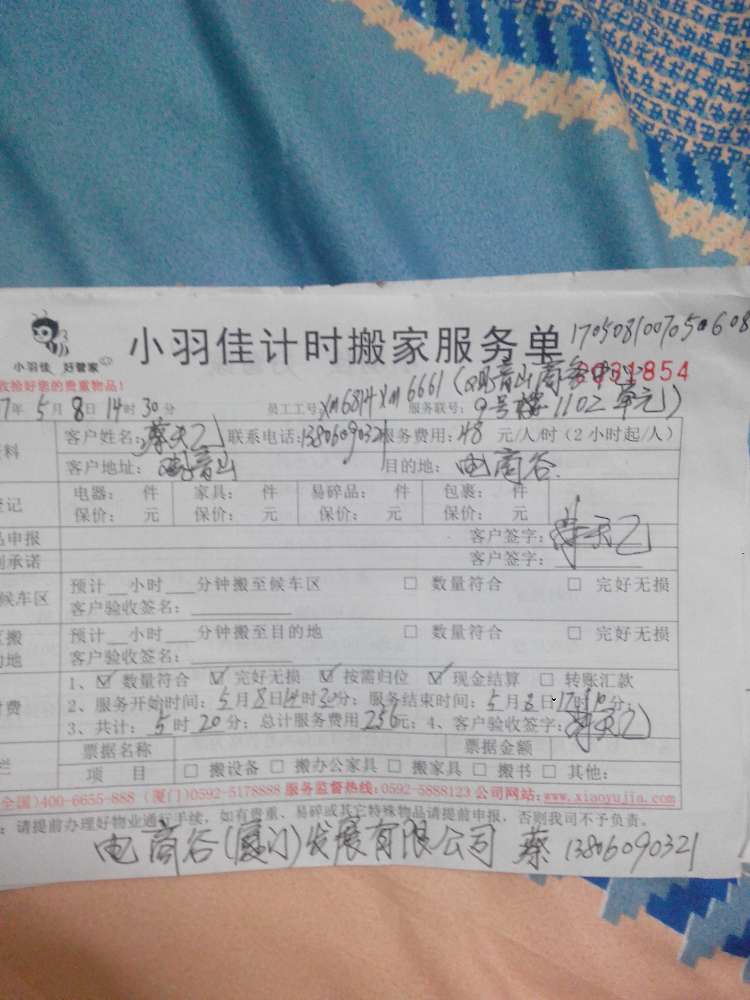 小羽佳 好管家
小羽佳计时搬家服务单 1705081007050608
收拾好您的贵重物品!
7年5月8日14时30分 员工工号:XM6814 XM6661 (鸣音山商务中心
服务联号: 0031854
9号楼1102单元)
资料 客户姓名:蔡天乙 联系电话:13806090321 服务费用:48元/人/时(2小时起/人)
客户地址:鸣音山 目的地:电商谷
登记 电器: 件 家具: 件 易碎品: 件 包裹: 件
保价: 元 保价: 元 保价: 元 保价: 元
品申报 客户签字:蔡天乙
则承诺 客户签字:
候车区 预计__小时___分钟搬至候车区 □ 数量符合 □ 完好无损
客户验收签名:
搬 预计__小时___分钟搬至目的地 □ 数量符合 □ 完好无损
的地 客户验收签名:
1、☑ 数量符合 ☑ 完好无损 ☑ 按需归位 ☑ 现金结算 □ 转账汇款
付费 2、服务开始时间:5月8日14时30分;服务结束时间:5月8日17时10分;
3、共计:5时20分;总计服务费用256元;4、客户验收签字:蔡天乙
栏 票据名称 票据金额
项 目 □ 搬设备 □ 搬办公家具 □ 搬家具 □ 搬书 □ 其他:
全国)400-6655-888 (厦门)0592-5178888 服务监督热线:0592-5888123 公司网站:www.xiaoyujia.com
:请提前办理好物业通行手续,如有贵重、易碎或其它特殊物品请提前申报,否则我司不予负责。
电商谷(厦门)发展有限公司 蔡 13806090321